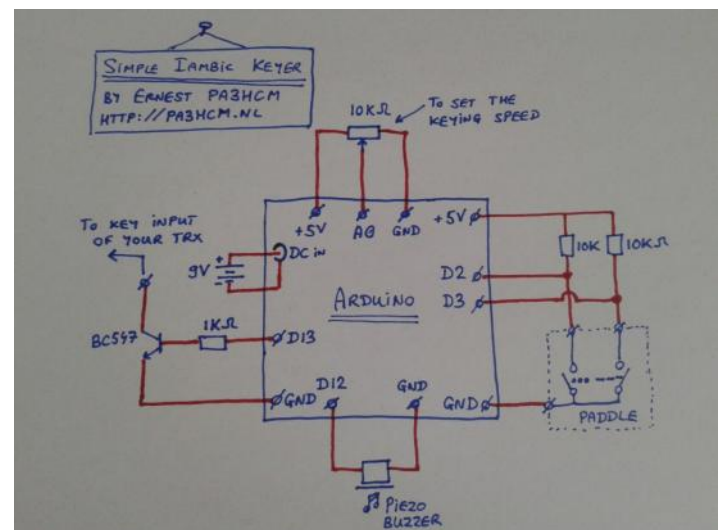 SIMPLE IAMBIC KEYER
BY ERNEST PA3HCM
HTTP://PA3HCM.NL
10KΩ
TO SET THE
KEYING SPEED
TO KEY INPUT
OF YOUR TRX
+5V
A0
GND
+5V
10K
10KΩ
9V
+
-
DC in
D2
D3
ARDUINO
BC547
1KΩ
D13
GND
D12
GND
GND
PADDLE
PIEZO
BUZZER